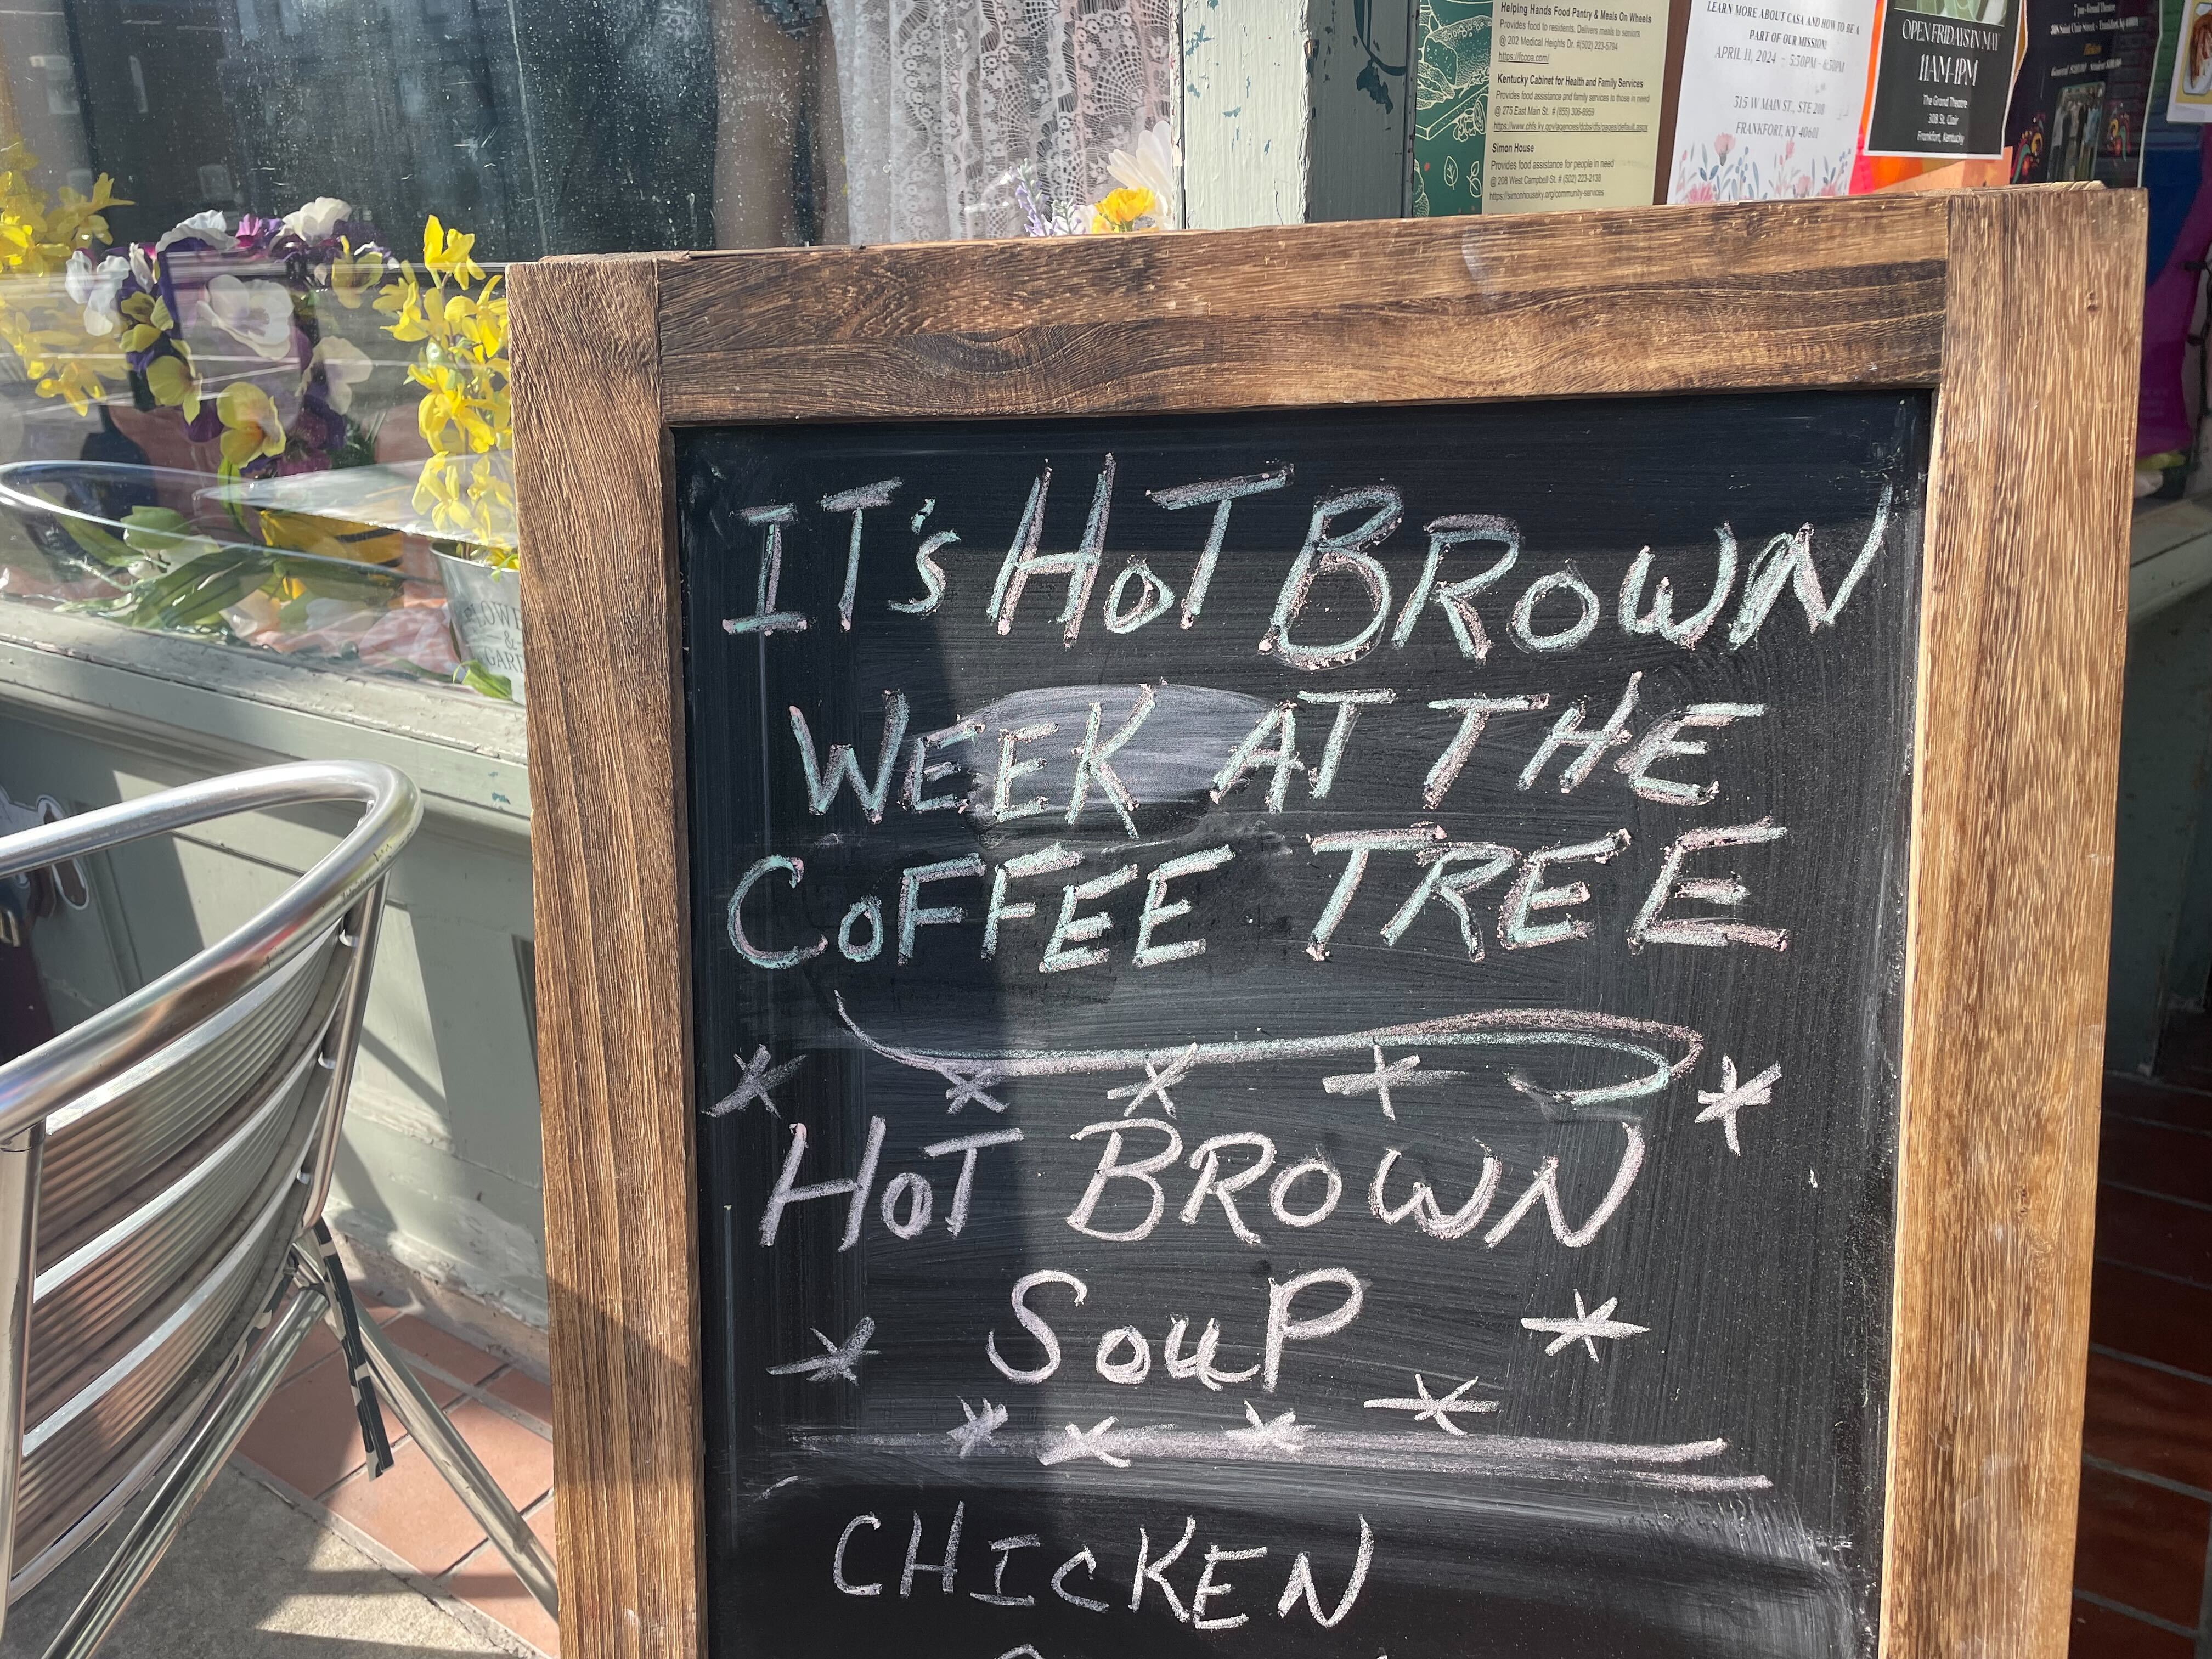 Helping Hands Food Pantry & Meals On Wheels
Provides food to residents. Delivers meals to seniors
@ 202 Medical Heights Dr. #(502) 223-5794
https://fccoa.com/
Kentucky Cabinet for Health and Family Services
Provides food assistance and family services to those in need
@ 275 East Main St. # (855) 306-8959
Simon House
Provides food assistance for people in need
@ 208 West Campbell St. # (502) 223-2138
https://simonhouseky.org/community-services
LEARN MORE ABOUT CASA AND HOW TO BE A
PART OF OUR MISSION!
APRIL 11, 2024 - 5:30PM - 6:30PM
315 W MAIN ST., STE 208
FRANKFORT, KY 40601
OPEN FRIDAYS IN MAY
11AM-1PM
The Grand Theatre
308 St. Clair
Frankfort, Kentucky
IT's HoT BROWN
WEEK AT THE
CoFFEE TREE
HoT BROWN
SouP
CHIcKEN
&
GARD